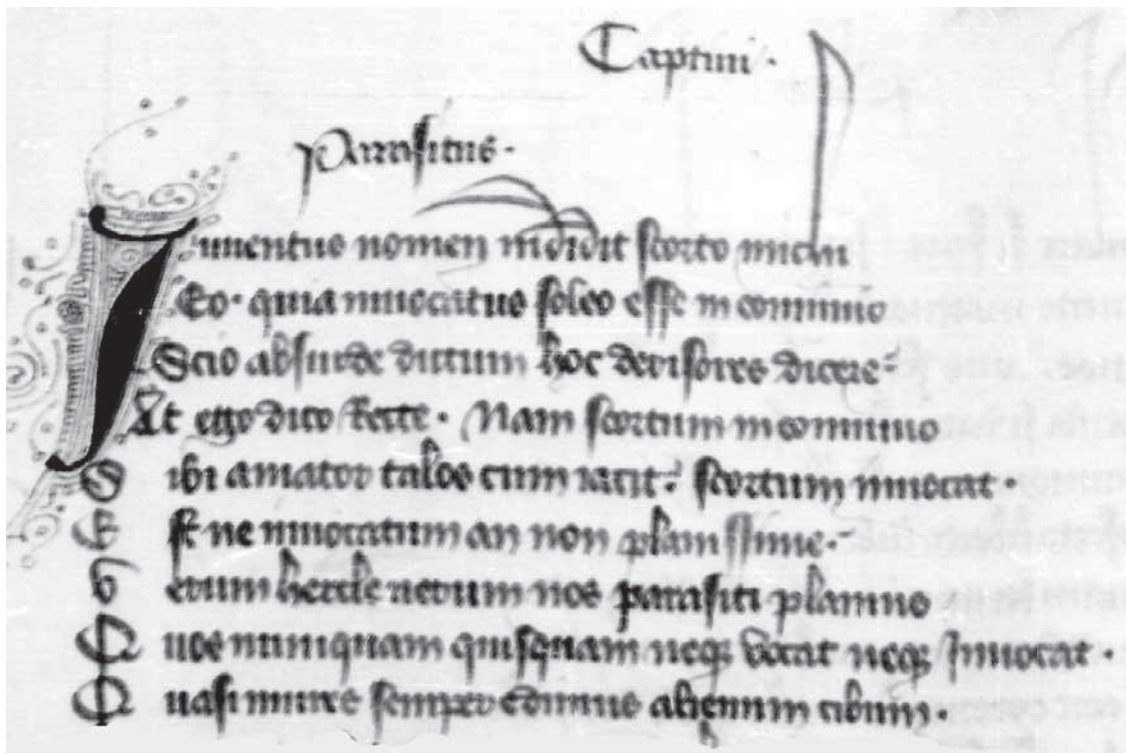 Captiui ·
Parasitus ·
Iuuentus nomen indidit scorto michi
Eo · quia inuocatus soleo esse in conuiuio
Scio absurde dictum hoc derisores dicere
At ego dico recte · Nam scortum in conuiuio
Sibi amator talos cum iacit : scortum inuocat ·
Est ne inuocatum an non planissime ·
Verum hercle uerum nos parasiti planiuo
Quos nunquam quisquam neqꝫ vocat neqꝫ Inuocat ·
Quasi mures semper edimus alienum cibum ·